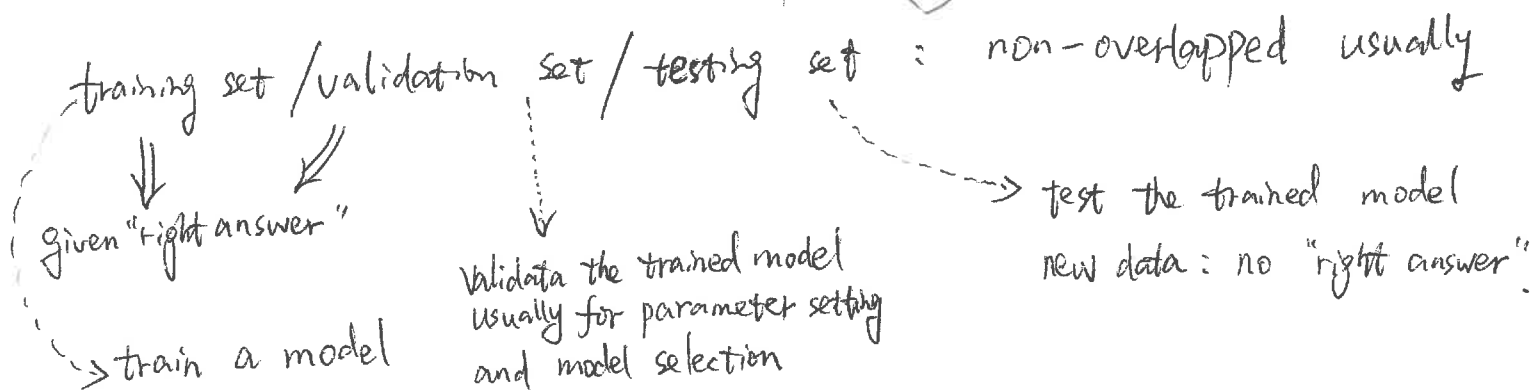 training set / validation set / testing set : non-overlapped usually
given "right answer"
train a model
Validata the trained model
usually for parameter setting
and model selection
test the trained model
new data : no "right answer".